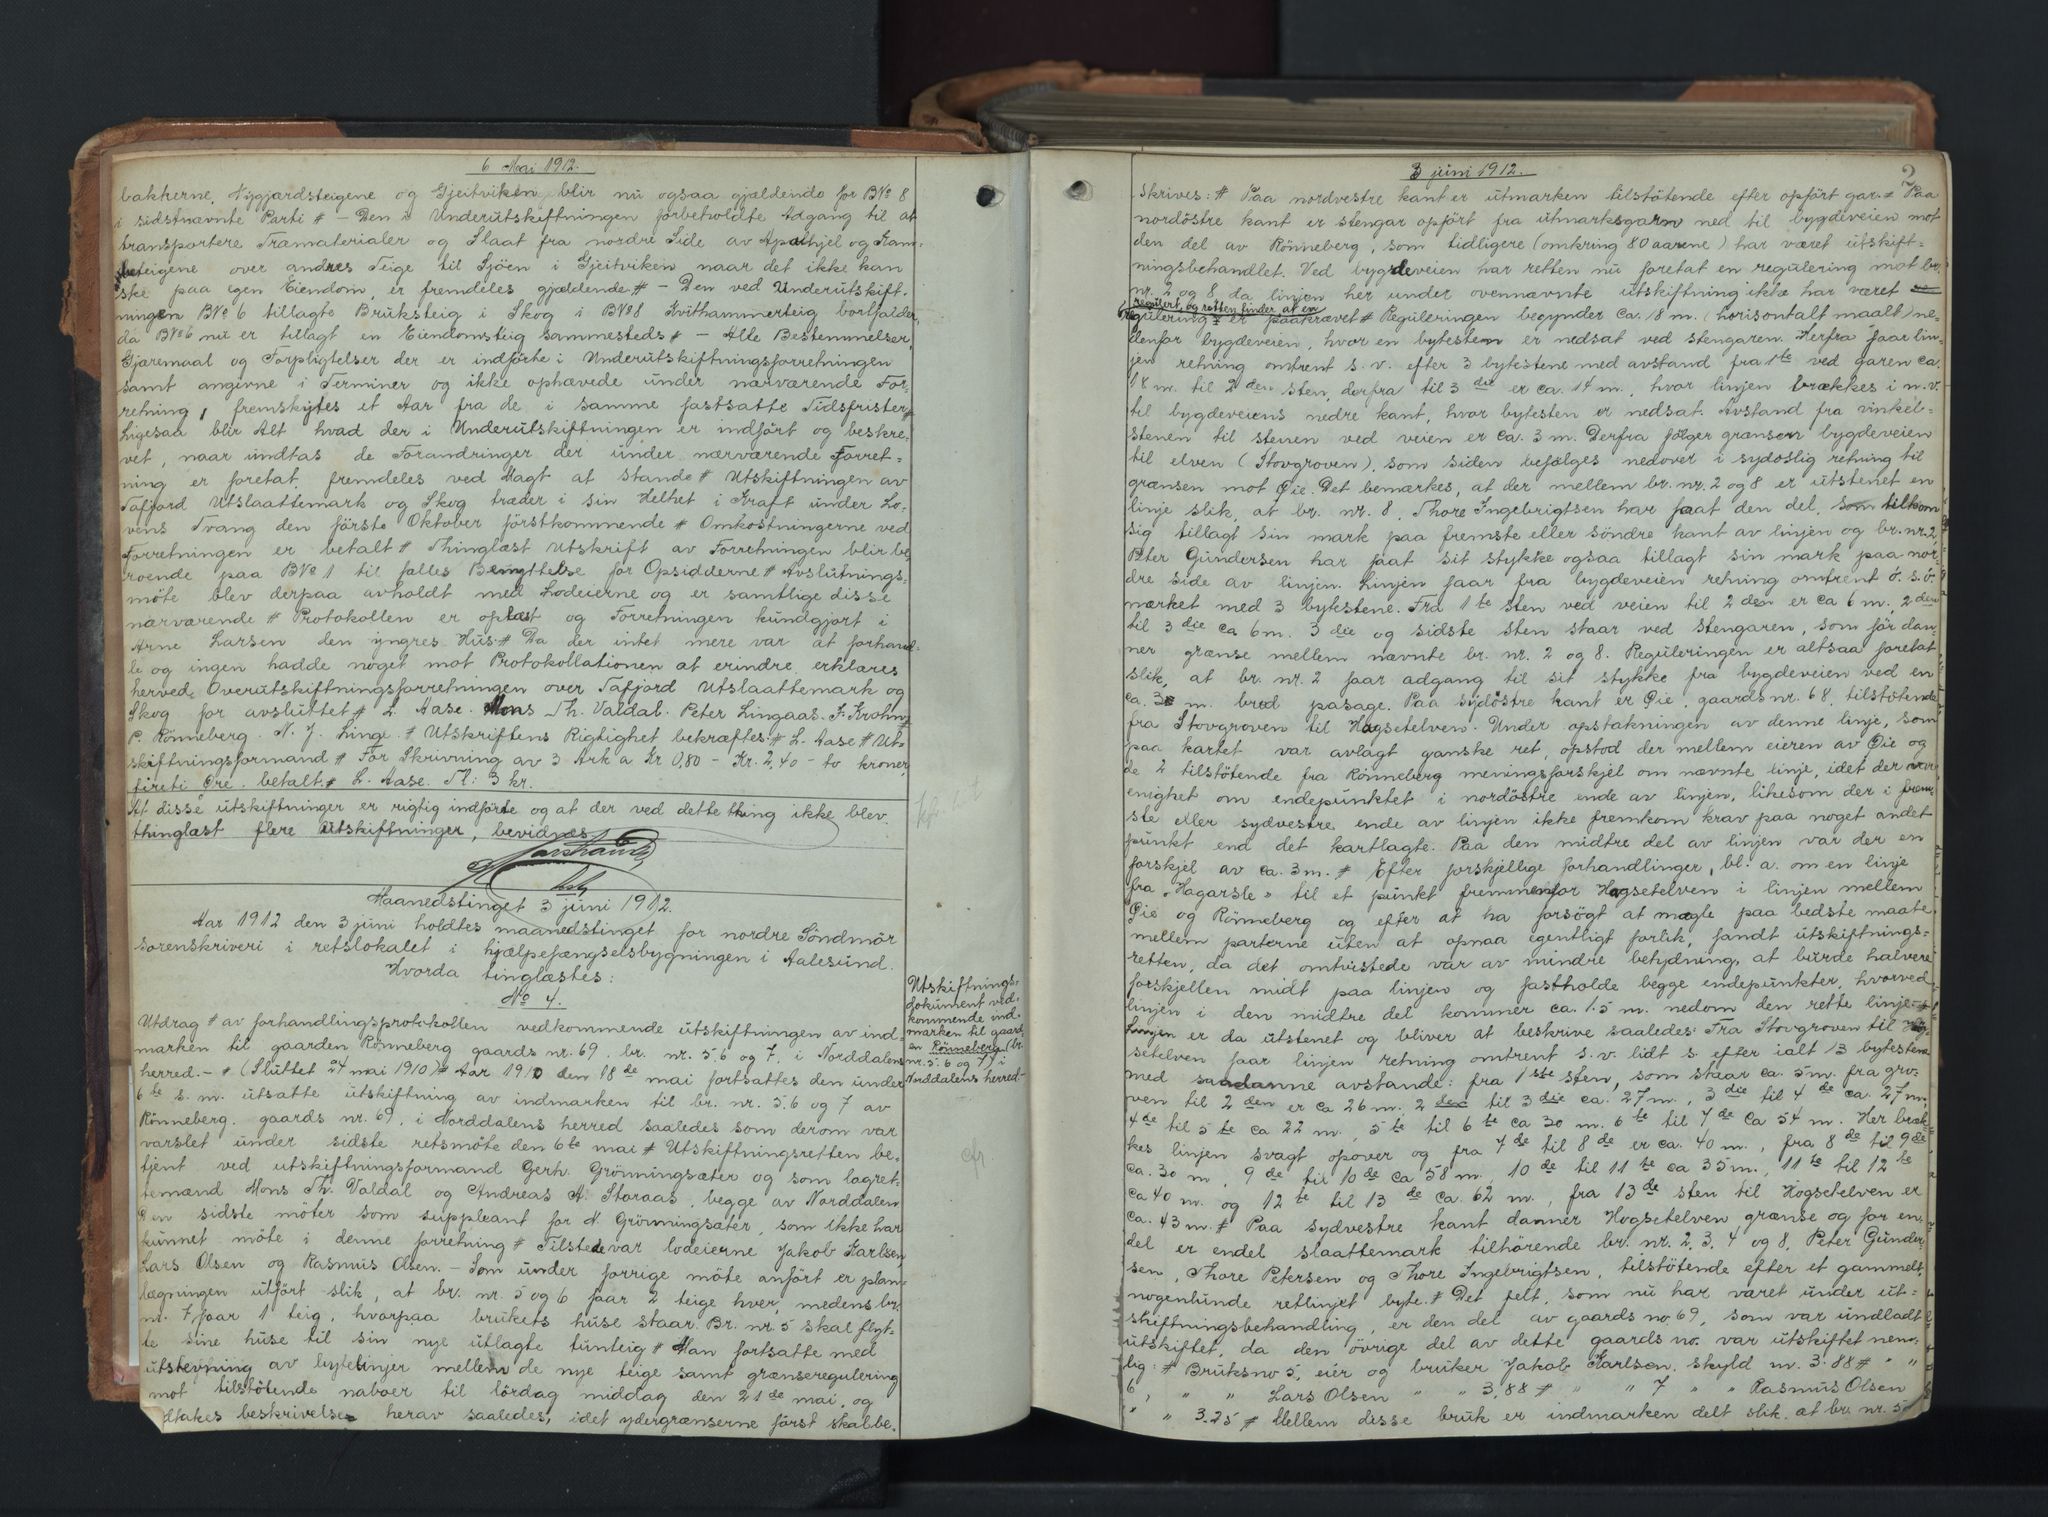 6 Mai 1912.
bakkerne, Nygjærdsteigene og Gjeitviken blir nu ogsaa gjældende for BNo 8
i sidstnævnte Parti # – Den i Underutskiftningen forbeholdte Adgang til at
transportere Træmaterialer og Slaat fra nordre Side av Apalhjel og Kam-
beteigene over andres Teige til Sjöen i Gjeitviken naar det ikke kan
ske paa egen Eiendom, er fremdeles gjældende # – Den ved Underutskift-
ningen BNo 6 tillagte Bruksteig i Skog i BNo 8 Kvithammerteig bortfalder,
da BNo 6 nu er tillagt en Eiendomsteig sammesteds # – Alle Bestemmelser,
Gjæremaal og Forpligtelser der er indförte i Underutskiftningsforretningen
samt angivne i Terminer og ikke ophævede under nærværende For-
retning, fremskytes et Aar fra de i samme fastsatte Tidsfrister #
Ligesaa blir Alt hvad der i Underutskiftningen er indfört og beskre-
vet, naar undtas de Forandringer der under nærværende Forret-
ning er foretat, fremdeles ved Magt at stande # Utskiftningen av
Tafjord Utslaattemark og Skog træder i sin Helhet i Kraft under Lo-
vens Tvang den förste Oktober förstkommende # Omkostningerne ved
Forretningen er betalt # Thinglæst Utskrift av Forretningen blir be
roende paa BNo 1 til fælles Benyttelse for Opsidderne # Avslutnings-
möte blev derpaa avholdt med Lodeierne og er samtlige disse
nærværende # Protokollen er oplæst og Forretningen kundgjort i
Arne Larsen den yngres Hus # Da der intet mere var at forhand-
le og ingen hadde noget mot Protokollationen at erindre erklæres
herved Overutskiftningsforretningen over Tafjord Utslaattemark og
Skog for avsluttet # L. Aase. Mons Th. Valdal. Peter Lingaas. J. Krohn
P. Rönneberg. N. J. Linge. # Utskriftens Rigtighet bekræftes # L. Aase # Ut-
skiftningsformand # For Skrivning av 3 Ark a Kr 0,80 – Kr. 2,40 – to kroner
firti Øre. betalt # L. Aase. Tl: 3 kr.
At disse utskiftninger er rigtig indförte og at der ved dette thing ikke blev
thinglæst flere utskiftninger, bevidnes
Maanedstinget 3 juni 1912.
Aar 1912 den 3 juni holdtes maanedstinget for nordre Söndmör
sorenskriveri i retslokalet i hjælpefængselsbygningen i Aalesund.
Hvorda tinglæstes:
No 4.
Utskiftnings-
dokument ved-
kommende ind-
marken til gaard-
en Rönneberg (br.
nr. 5. 6 og 7) i
Norddalens herred –
Utdrag # av forhandlingsprotokollen vedkommende utskiftningen av ind-
marken til gaarden Rönneberg gaards nr. 69. br. nr. 5. 6 og 7, i Norddalens
herred. – # (Sluttet 24 mai 1910) # Aar 1910 den 18de mai fortsattes den under
6te s. m. utsatte utskiftning av indmarken til br. nr. 5. 6 og 7 av
Rönneberg. gaards nr. 69. i Norddalens herred saaledes som derom var
varslet under sidste retsmöte den 6te mai # Utskiftningsretten be-
tjent ved utskiftningsformand Gerh. Grönningsæter og som lagret-
temænd Mons Th. Valdal og Andreas A. Storaas, begge av Norddalen
Den sidste möter som suppleant for N. Grönningsæter, som ikke har
kunnet möte i denne forretning # Tilstede var lodeierne Jakob Karlsen,
Lars Olsen og Rasmus Olsen. – Som under forrige möte anfört er plan-
lægningen utfört slik, at br. nr. 5 og 6 faar 2 teige hver, medens br.
nr. 7 faar 1 teig, hvorpaa brukets huse staar. Br. nr. 5 skal flyt-
te sine huse til sin nye utlagte tunteig # Man fortsatte med
utstevning av bytelinjer mellem de nye teige samt grænseregulering
mot tilstötende naboer til lördag middag den 21de mai, og
dtakes beskrivelse herav saaledes, idet ydergrænserne först skal be-
cfr.
3 juni 1912.
2
skrives: # Paa nordvestre kant er utmarken tilstötende efter opfört gar. # Paa
nordöstre kant er stengar opfört fra utmarksgarn ned til bygdeveien mot
den del av Rönneberg, som tidligere (omkring 80 aarene) har været utskift-
ningsbehandlet. Ved bygdeveien har retten nu foretat en regulering mot br.
nr. 2 og 8, da linjen her under ovennævnte utskiftning ikke har været
regulert, og retten finder at en
regulering er paakrævet # Reguleringen begynder ca. 18 m. (horisontalt maalt) ne-
denfor bygdeveien, hvor en bytesten er nedsat ved stengaren. Herfra faar lin-
jen retning omtrent s. v. efter 3 bytestene med avstand fra 1te ved garen ca.
18 m. til 2den sten, derfra til 3die er ca. 14 m., hvor linjen brækkes i n. v.
til bygdeveiens nedre kant, hvor bytesten er nedsat. Avstand fra vinkel-
stenen til stenen ved veien er ca. 3 m. Derfra fölger grænsen bygdeveien
til elven (Stovgroven), som siden befölges nedover i sydöstlig retning til
grænsen mot Øie. Det bemærkes, at der mellem br. nr. 2 og 8 er utstenet en
linje slik, at br. nr. 8, Thore Ingebrigtsen har faat den del, som tilkom
sig tillagt sin mark paa fremste eller söndre kant av linjen og br. nr. 2,
Peter Gundersen har faat sit stykke ogsaa tillagt sin mark paa nor-
dre side av linjen. Linjen faar fra bygdeveien retning omtrent ö. s. ö.
mærket med 3 bytestene. Fra 1te sten ved veien til 2den er ca 6 m., 2den
til 3die ca 6 m. 3die og sidste sten staar ved stengaren, som för dan-
ner grænse mellem nævnte br. nr. 2 og 8. Reguleringen er altsaa foretat
slik, at br. nr. 2 faar adgang til sit stykke fra bygdeveien ved en
ca. 3 m. bred pasage. Paa sydöstre kant er Øie, gaards nr. 68, tilstötende
fra Stovgroven til Hogsetelven. Under opstakningen av denne linje, som
paa kartet var avlagt ganske ret, opstod der mellem eieren av Øie og
de 2 tilstötende fra Rönneberg meningsforskjel om nævnte linje, idet der var
enighet om endepunktet i nordöstre ende av linjen, likesom der i frem-
ste eller sydvestre ende av linjen ikke fremkom krav paa noget andet
punkt end det kartlagte. Paa den midtre del av linjen var der en
forskjel av ca. 3 m. # Efter forskjellige forhandlinger, bl. a. om en linje
fra "Hagarsle" til et punkt fremmenfor Hogsetelven i linjen mellem
Øie og Rönneberg og efter at ha forsögt at mægle paa bedste maate
mellem parterne uten at opnaa egentligt forlik, fandt utskiftnings-
retten, da det omtvistede var av mindre betydning, at burde halvere
forskjellen midt paa linjen og fastholde begge endepunkter, hvorved
linjen i den midtre del kommer ca. 1.5 m. nedom den rette linje #
Linjen er da utstenet og bliver at beskrive saaledes: Fra Stovgroven til Hog-
setelven faar linjen retning omtrent s. v. lidt s. efter ialt 13 bytestene
med saadanne avstande: fra 1ste sten, som staar ca. 5 m. fra gro-
ven til 2den er ca 26 m. 2den til 3die ca. 27 m., 3die til 4de ca. 27 m.
4de til 5te ca 22 m., 5te til 6te ca 30 m. 6te til 7de ca 54 m. Her bræk-
kes linjen svagt opover og fra 7de til 8de er ca. 40 m., fra 8de til 9de
ca. 30 m., 9de til 10de ca 58 m. 10de til 11te ca 35 m., 11te til 12te
ca 40 m. og 12te til 13de ca. 62 m., fra 13de sten til Hogsetelven er
ca. 43 m. # Paa sydvestre kant danner Hogsetelven grænse og for en
del er endel slaattemark tilhörende br. nr. 2. 3. 4 og 8, Peter Gunder-
sen, Thore Petersen og Thore Ingebrigtsen, tilstötende efter et gammelt,
nogenlunde retlinjet byte. # Det felt, som nu har været under ut-
skiftningsbehandling, er den del av gaards no 69, som var undladt
utskiftet, da den övrige del av dette gaards no. var utskiftet nem-
lig: # Bruksno 5, eier og bruker Jakob Karlsen, skyld m. 3.88 # " "
6, " " Lars Olsen " " 3,88 # " " 7 " " Rasmus Olsen
" " 3.25 # Mellem disse bruk er indmarken delt slik, at br. nr. 5